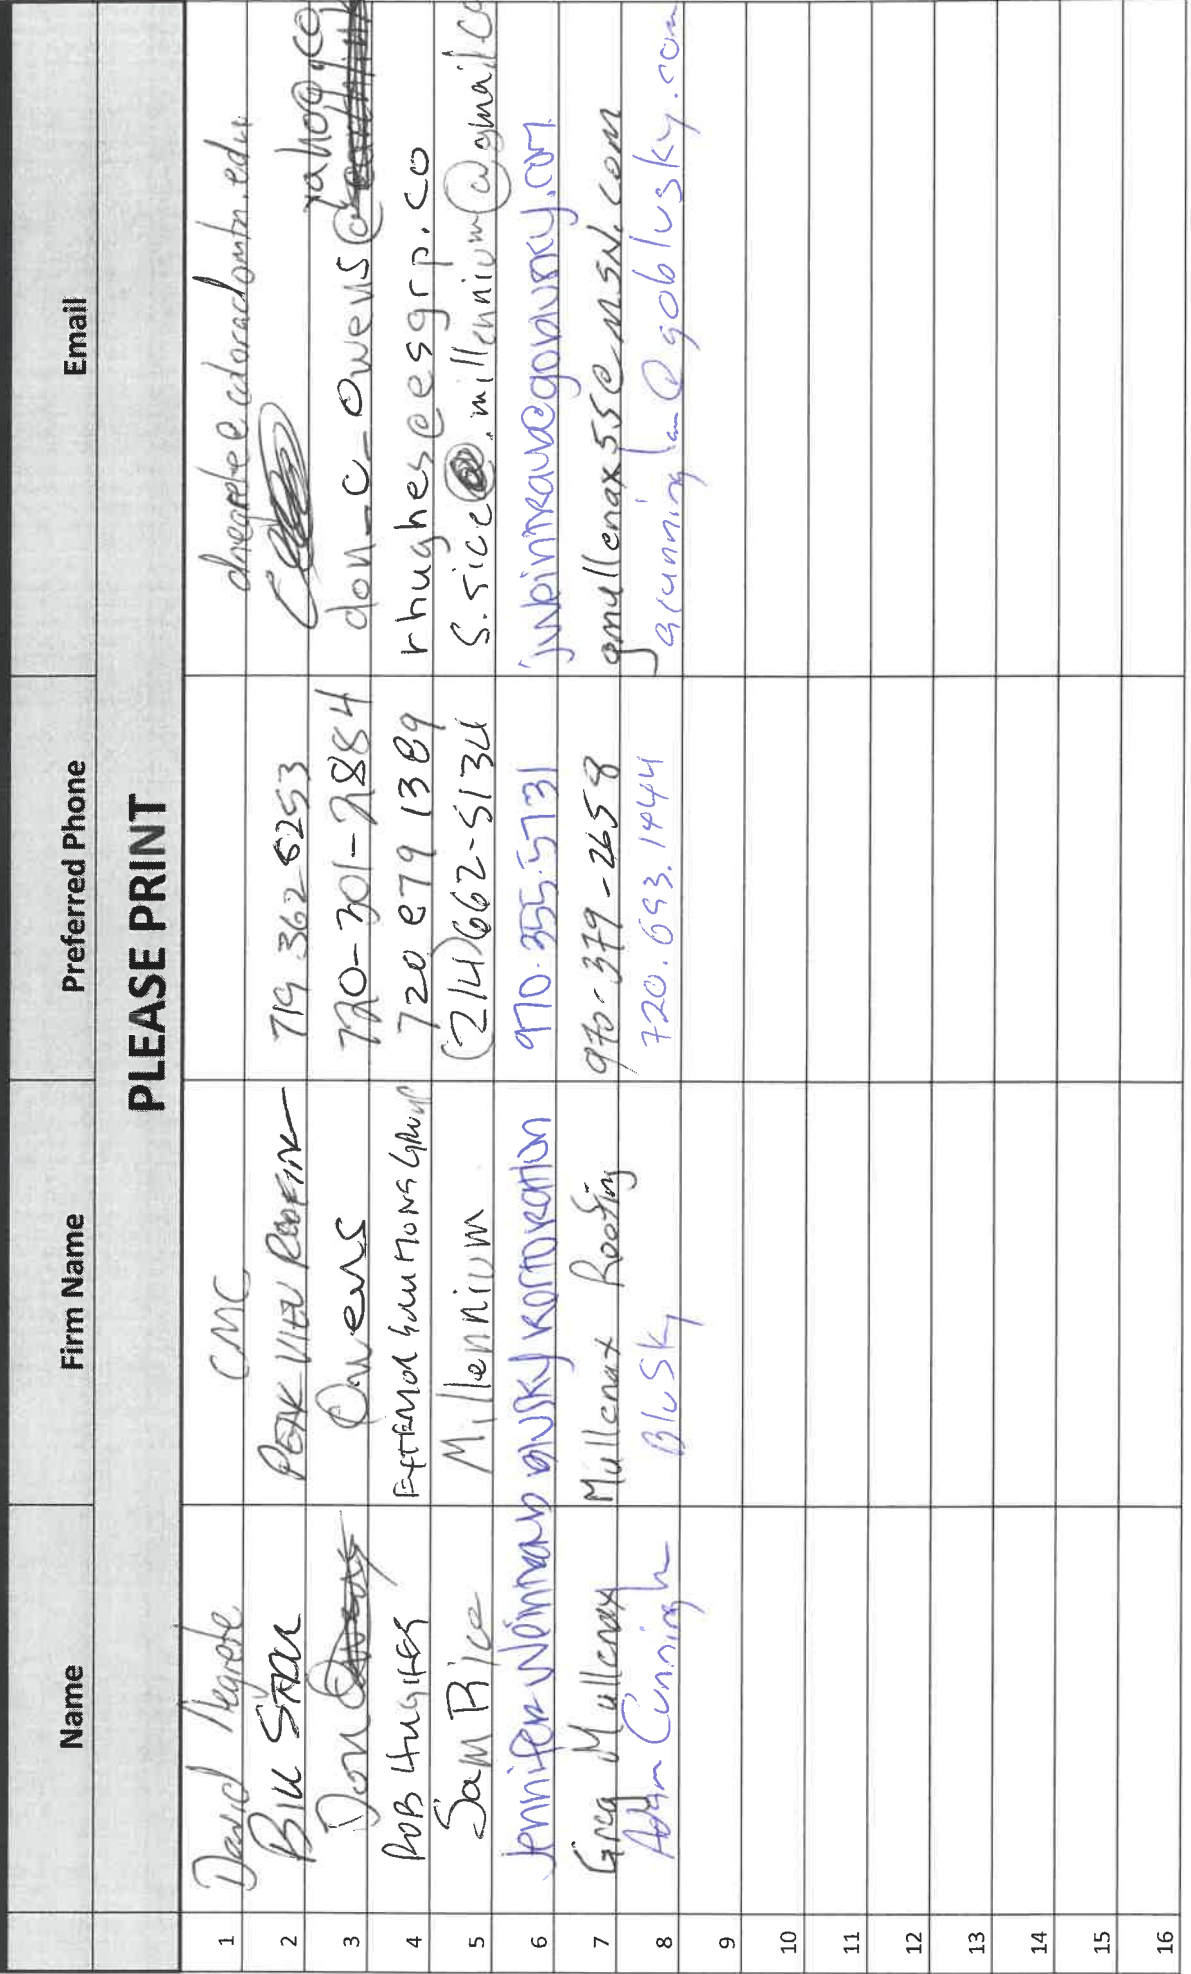 Name Firm Name Preferred Phone Email
PLEASE PRINT
1 David Negrete CMC dnegrete@coloradomtn.edu
2 BILL PEAK VIEW ROOFING 719 362 6253
3 Don Owens 720-301-2884 don_c_owens@ yahoo.co
4 ROB HUGHES EXTERIOR SOLUTIONS GROUP 720 879 1389 rhughes@esgrp.co
5 Sam Rice Millennium (214) 662-5134 s.rice.millennium@gmail.co
6 Jennifer Weinman BLUSKY RESTORATION 970.355.5731 jweinman@goblusky.com
7 Greg Mullenax Mullenax Roofing 970-379-2658 gmullenax55@msn.com
8 Adam Cunningh BluSky 720.693.1444 acunningham@goblusky.com
9
10
11
12
13
14
15
16